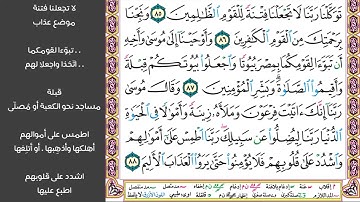 تَوَكَّلْنَا رَبَّنَا لَا تَجْعَلْنَا فِتْنَةً لِّلْقَوْمِ الظَّٰلِمِينَ ٨٥ وَنَجِّنَا
بِرَحْمَتِكَ مِنَ الْقَوْمِ الْكَٰفِرِينَ ٨٦ وَأَوْحَيْنَا إِلَىٰ مُوسَىٰ وَأَخِيهِ
أَن تَبَوَّءَا لِقَوْمِكُمَا بِمِصْرَ بُيُوتًا وَاجْعَلُوا بُيُوتَكُمْ قِبْلَةً
وَأَقِيمُوا الصَّلَوٰةَ وَبَشِّرِ الْمُؤْمِنِينَ ٨٧ وَقَالَ مُوسَىٰ
رَبَّنَا إِنَّكَ ءَاتَيْتَ فِرْعَوْنَ وَمَلَأَهُ زِينَةً وَأَمْوَٰلًا فِي الْحَيَوٰةِ
الدُّنْيَا رَبَّنَا لِيُضِلُّوا عَن سَبِيلِكَ رَبَّنَا اطْمِسْ عَلَىٰ أَمْوَٰلِهِمْ
وَاشْدُدْ عَلَىٰ قُلُوبِهِمْ فَلَا يُؤْمِنُوا حَتَّىٰ يَرَوُا الْعَذَابَ الْأَلِيمَ ٨٨
لا تجعلنا فتنة
موضع عذاب
تبوّءا لقومكما ..
.. اتخذا واجعلا لهم
قبلة
مساجد نحو الكعبة أو مُصلّى
اطمس على أموالهم
أهلكها وأذهبها ، أو أتلفها
واشدد على قلوبهم
اطبع عليها